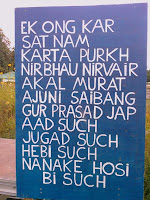 EK ONG KAR
SAT NAM
KARTA PURKH
NIRBHAU NIRVAIR
AKAL MURAT
AJUNI SAIBANG
GUR PRASAD JAP
AAD SUCH
JUGAD SUCH
HEBI SUCH
NANAKE HOSI
BI SUCH